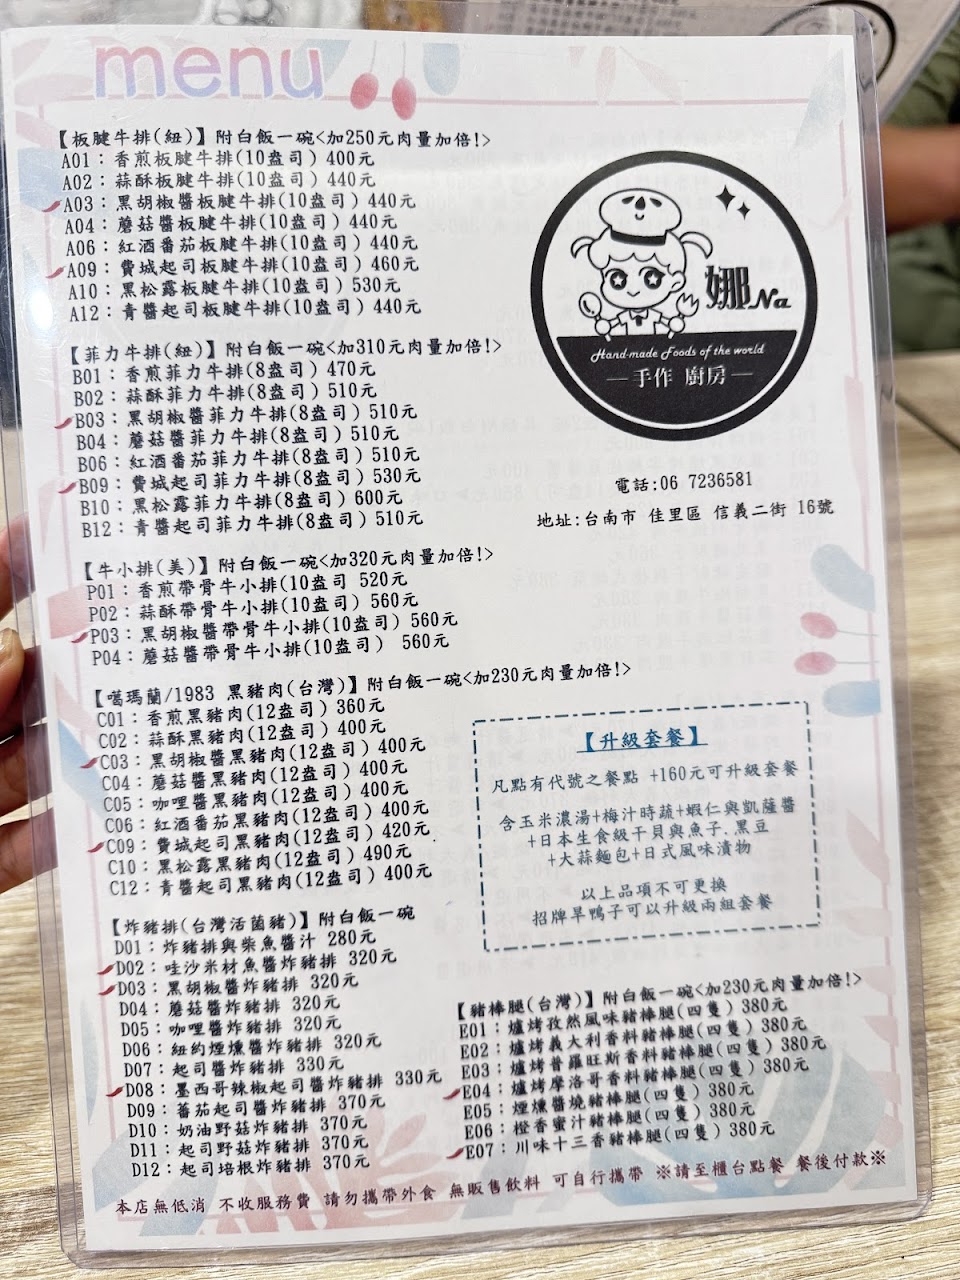 menu
【板腱牛排(紐)】附白飯一碗<加250元肉量加倍!>
A01：香煎板腱牛排(10盎司)400元
A02：蒜酥板腱牛排(10盎司)440元
A03：黑胡椒醬板腱牛排(10盎司)440元
A04：蘑菇醬板腱牛排(10盎司)440元
A06：紅酒番茄板腱牛排(10盎司)440元
A09：費城起司板腱牛排(10盎司)460元
A10：黑松露板腱牛排(10盎司)530元
A12：青醬起司板腱牛排(10盎司)440元
娜Na
Hand-made Foods of the world
—手作 廚房—
電話:06 7236581
地址:台南市 佳里區 信義二街 16號
【菲力牛排(紐)】附白飯一碗<加310元肉量加倍!>
B01：香煎菲力牛排(8盎司)470元
B02：蒜酥菲力牛排(8盎司)510元
B03：黑胡椒醬菲力牛排(8盎司)510元
B04：蘑菇醬菲力牛排(8盎司)510元
B06：紅酒番茄菲力牛排(8盎司)510元
B09：費城起司菲力牛排(8盎司)530元
B10：黑松露菲力牛排(8盎司)600元
B12：青醬起司菲力牛排(8盎司)510元
【牛小排(美)】附白飯一碗<加320元肉量加倍!>
P01：香煎帶骨牛小排(10盎司 520元
P02：蒜酥帶骨牛小排(10盎司)560元
P03：黑胡椒醬帶骨牛小排(10盎司)560元
P04：蘑菇醬帶骨牛小排(10盎司) 560元
【噶瑪蘭/1983 黑豬肉(台灣)】附白飯一碗<加230元肉量加倍!>
C01：香煎黑豬肉(12盎司)360元
C02：蒜酥黑豬肉(12盎司)400元
C03：黑胡椒醬黑豬肉(12盎司)400元
C04：蘑菇醬黑豬肉(12盎司)400元
C05：咖哩醬黑豬肉(12盎司)400元
C06：紅酒番茄黑豬肉(12盎司)400元
C09：費城起司黑豬肉(12盎司)420元
C10：黑松露黑豬肉(12盎司)490元
C12：青醬起司黑豬肉(12盎司)400元
【升級套餐】
凡點有代號之餐點 +160元可升級套餐
含玉米濃湯+梅汁時蔬+蝦仁與凱薩醬
+日本生食級干貝與魚子.黑豆
+大蒜麵包+日式風味漬物
以上品項不可更換
招牌旱鴨子可以升級兩組套餐
【炸豬排(台灣活菌豬)】附白飯一碗
D01：炸豬排與柴魚醬汁 280元
D02：哇沙米材魚醬炸豬排 320元
D03：黑胡椒醬炸豬排 320元
D04：蘑菇醬炸豬排 320元
D05：咖哩醬炸豬排 320元
D06：紐約煙燻醬炸豬排 320元
D07：起司醬炸豬排 330元
D08：墨西哥辣椒起司醬炸豬排 330元
D09：蕃茄起司醬炸豬排 370元
D10：奶油野菇炸豬排 370元
D11：起司野菇炸豬排 370元
D12：起司培根炸豬排 370元
【豬棒腿(台灣)】附白飯一碗<加230元肉量加倍!>
E01：爐烤孜然風味豬棒腿(四隻)380元
E02：爐烤義大利香料豬棒腿(四隻)380元
E03：爐烤普羅旺斯香料豬棒腿(四隻)380元
E04：爐烤摩洛哥香料豬棒腿(四隻)380元
E05：煙燻醬燒豬棒腿(四隻)380元
E06：橙香蜜汁豬棒腿(四隻)380元
E07：川味十三香豬棒腿(四隻)380元
本店無低消 不收服務費 請勿攜帶外食 無販售飲料 可自行攜帶 ※請至櫃台點餐 餐後付款※